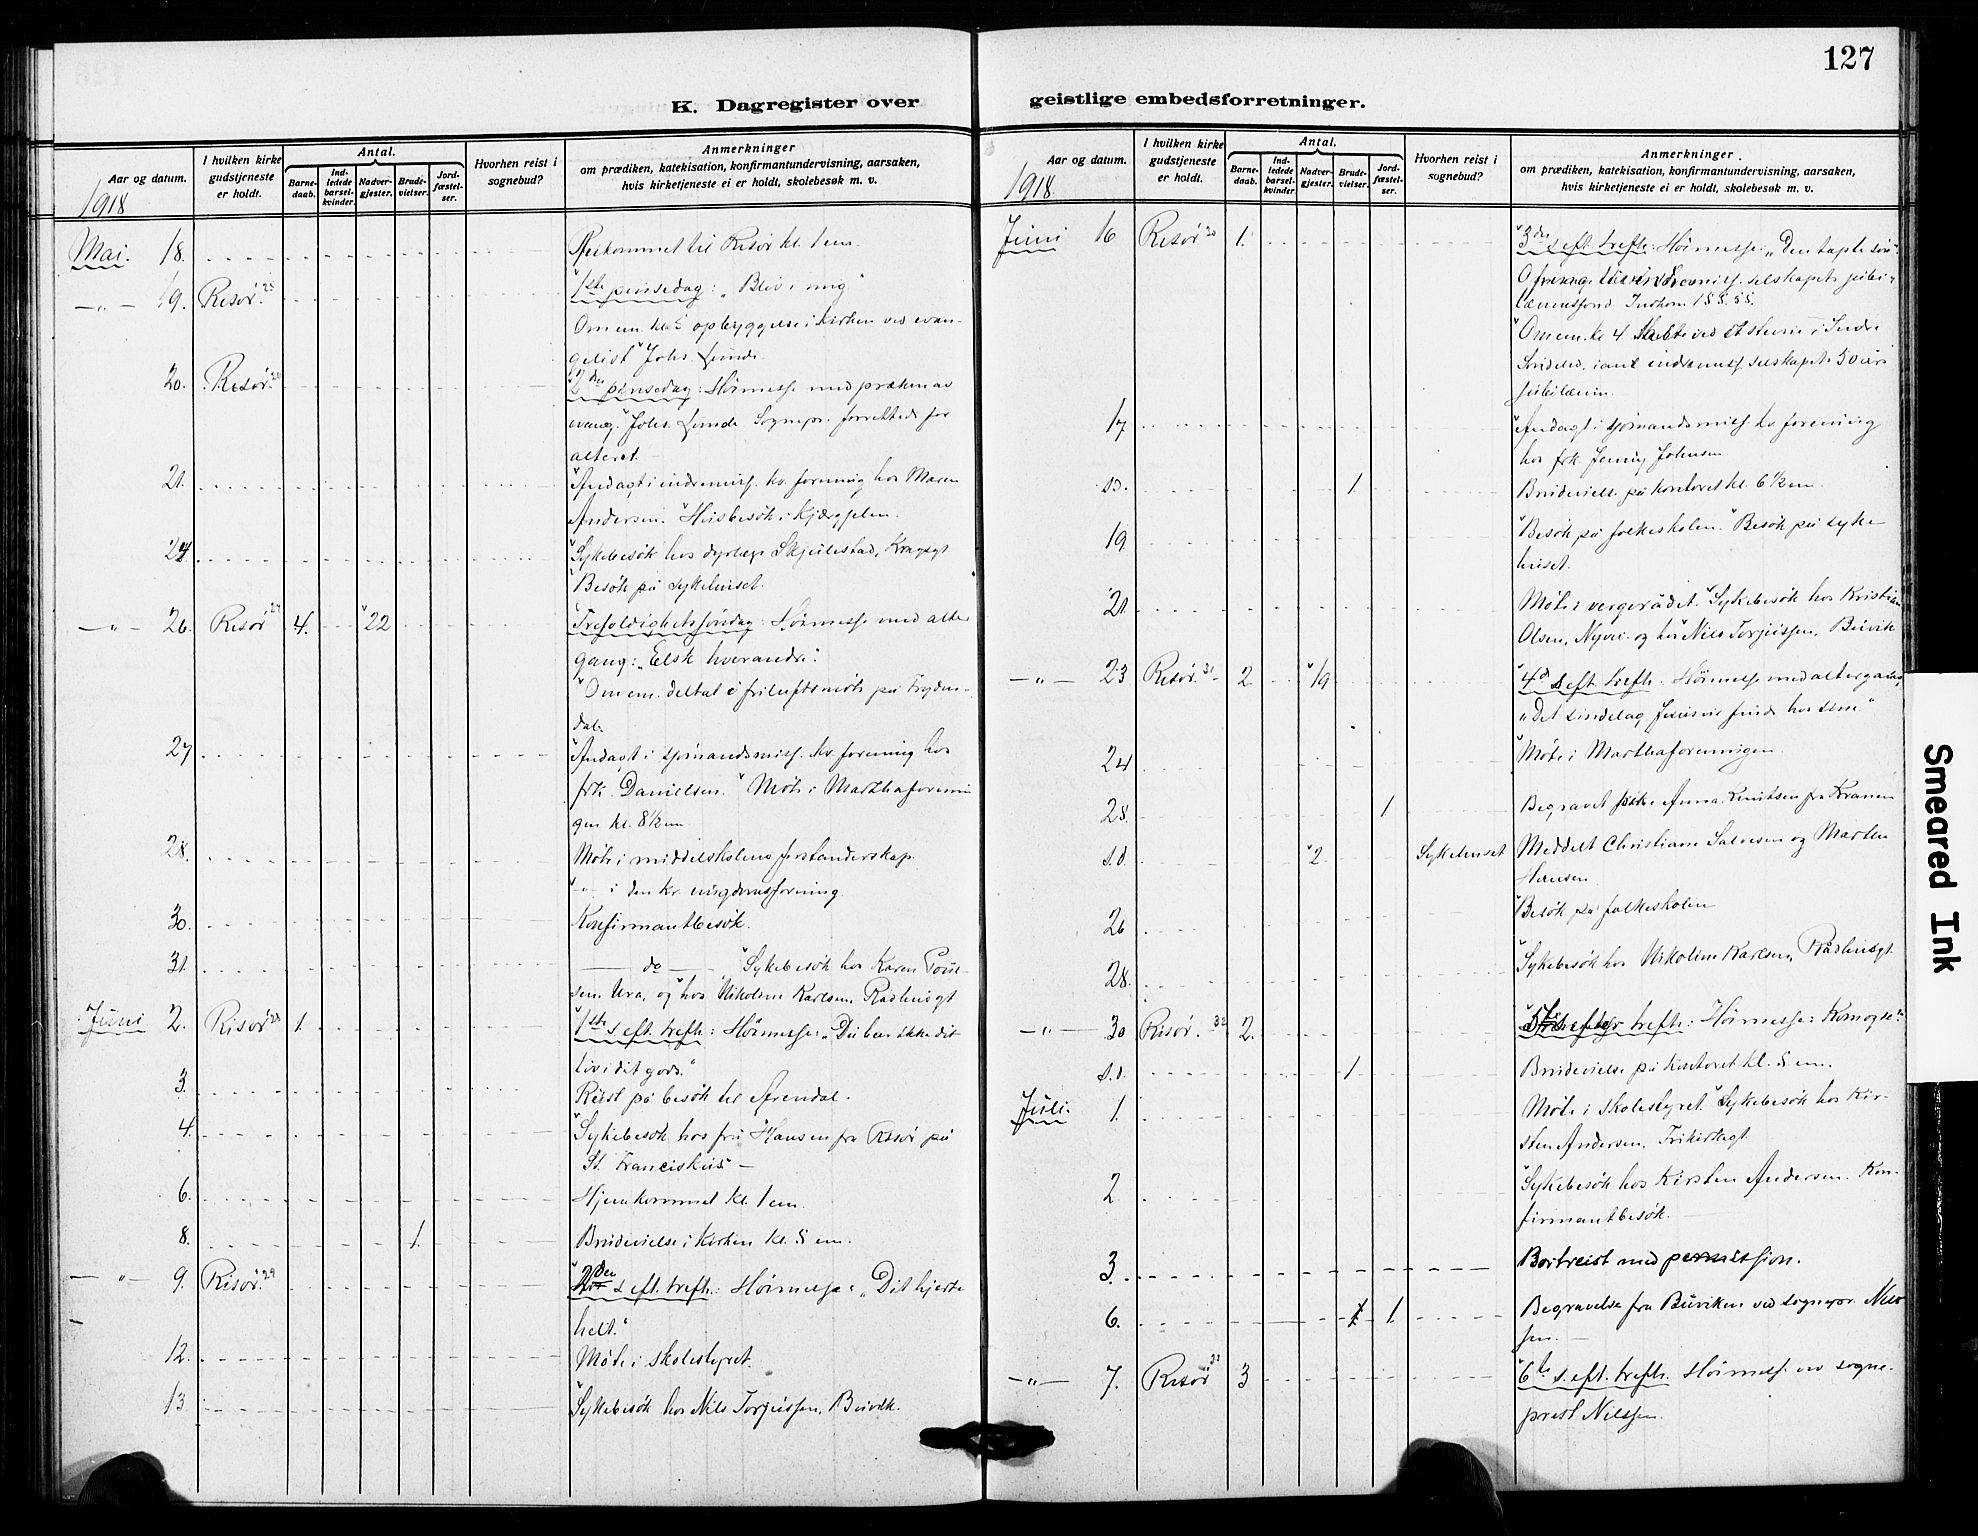 K. Dagregister over
Aar og datum.
1918
I hvilken kirke gudstjeneste er holdt.
Antal.
Barnedaab.
Indledede barselkvinder.
Nadvergjester.
Brudevielser.
Jordfæstelser.
Hvorhen reist i sognebud?
Anmerkninger
om prædiken, katekisation, konfirmantundervisning, aarsaken,
hvis kirketjeneste ei er holdt, skolebesøk m. v.
Mai. 18. kommet til Risør kl. 1 em.
—„— 19. Risør. 25 1ste pinsedag: „Bliv i mig"
Om em. kl. 5 opbyggelse i kirken ved evan-
gelist Johs. Lunde.
20. Risør. 26 2den pinsedag: Høimesse med præken av
evang. Johs. Lunde. Sognepr. forrettede for
alteret.
21. Andagt i indremiss. kv. forening hos Maren
Andersen. Husbesøk i
24. Sykebesøk hos dyrlæge Skjulestad, Kragsgt
Besøk på sykehuset.
—„— 26. Risør 27 4. 22 Trefoldighetssøndag: Høimesse med alter
gang: „Elsk hverandre".
Om em. deltat i friluftsmøte på Fryden-
dal.
27 Andagt i sjømandsmiss. kv. forening hos
frk. Danielsen. Møte i Marthaforenin
gen kl. 8½ em
28. Møte i middelskolens forstanderskap.
—„— i den kr. ungdomsforening.
30. Konfirmantbesøk.
31. — do — Sykebesøk hos Karen Poul-
sen, Ura, og hos Nikoline Karlsen, Rådhusgt
Juni 2. Risør 28 1. 1ste s. eft. trefh: Høimesse: „Du har ikke dit
liv i dit gods."
3. Reist på besøk til Arendal.
4. Sykebesøk hos fru Hansen fra Risør på
St. Franciskus —
6. Hjemkommet kl. 1 em.
8. 1. Brudevielse i kirken kl. 5 em.
—„— 9. Risør. 29 2den s. eft. trefh.: Høimesse: „Dit hjerte
helt."
12. Møte i skolestyret.
13 Sykebesøk hos Nils Torjussen, Buvik.
127
geistlige embedsforretninger.
Aar og datum.
1918.
I hvilken kirke gudstjeneste er holdt.
Antal.
Barnedaab.
Indledede barselkvinder
Nadvergjester.
Brudevielser.
Jordfæstelser.
Hvorhen reist i sognebud?
Anmerkninger.
om prædiken, katekisation, konfirmantundervisning, aarsaken,
hvis kirketjeneste ei er holdt, skolebesøk m. v.
Juni 16 Risør 30 1. 3die s. eft. trefh: Høimesse: „Den tapte søn".
Ofring til indremiss. selskapets jubi-
læumsfond. Indkom 155.55.
Om em. kl 4 stevne i Indre
Søndeled, i anl. indremiss. selskapets 50 års
jubilæum.
17 Andagt i sjømandsmiss. kv. forening
hos frk. Jenny Johnsen.
s.d. 1 Brudeviels. på kontoret kl. 6½ em.
19 Besøk på folkeskolen. Besøk på syke
huset.
21 Møte i vergerådet. Sykebesøk hos Kristian
Olsen, Nyvei. og hos Nils Torjussen, Buvik
—„— 23 Risør. 31 2. 19 4de s. eft. trefh. Høimesse med altergang,
„Det sindelag Jesus vil finde hos sine."
24 Møte i Marthaforeningen.
25. 1 Begravet Anna Knutsen fra Kranen
s.d. 2 Sykehuset Meddelt Christiane Salvesen og Marten
Hansen
26 Besøk på folkeskolen
28. Sykebesøk hos Nikoline Karlsen, Rådhusgt.
—„— 30 Risør. 32 2. trefh: Høimesse:
s.d. 1 Brudevielse på kontoret kl. 5 em.
Juli. 1. Møte i skolestyret. Sykebesøk hos Kir-
sten Andersen, Frikirkegt
2 Sykebesøk hos Kirsten Andersen. Kon-
firmantbesøk.
3. Bortreist med permission.
6. 1 Begravelse fra Buviken ved sognepr. Nils
sen. —
—„— 7. Risør 33 3 6te s. eft. trefh. Høimess. ved sogne-
prest Nilssen.
Smeared Ink